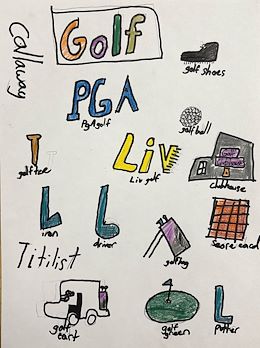 Callaway
Golf
golf shoes
PGA
Pga golf
golf ball
golf tee
Liv
Liv golf
clubhouse
iron
driver
golf bag
Score card
Titilist
golf cart
golf green
putter